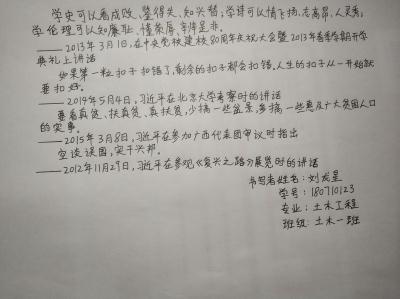 学史可以看成败、鉴得失、知兴替；学诗可以情飞扬、志高昂、人灵秀；
学伦理可以知廉耻、懂荣辱、辨是非。
——2013年3月1日,在中央党校建校80周年庆祝大会暨2013年春季学期开学
典礼上讲话
如果第一粒扣子扣错了,剩余的扣子都会扣错。人生的扣子从一开始就
要扣好。
——2014年5月4日,习近平在北京大学考察时的讲话
要看真贫、扶真贫、真扶贫,少搞一些盆景,多搞一些惠及广大贫困人口
的实事。
——2015年3月8日,习近平在参加广西代表团审议时指出
空谈误国,实干兴邦。
——2012年11月29日,习近平在参观《复兴之路》展览时的讲话
书写者姓名：刘龙星
学号：180710123
专业：土木工程
班级：土木一班